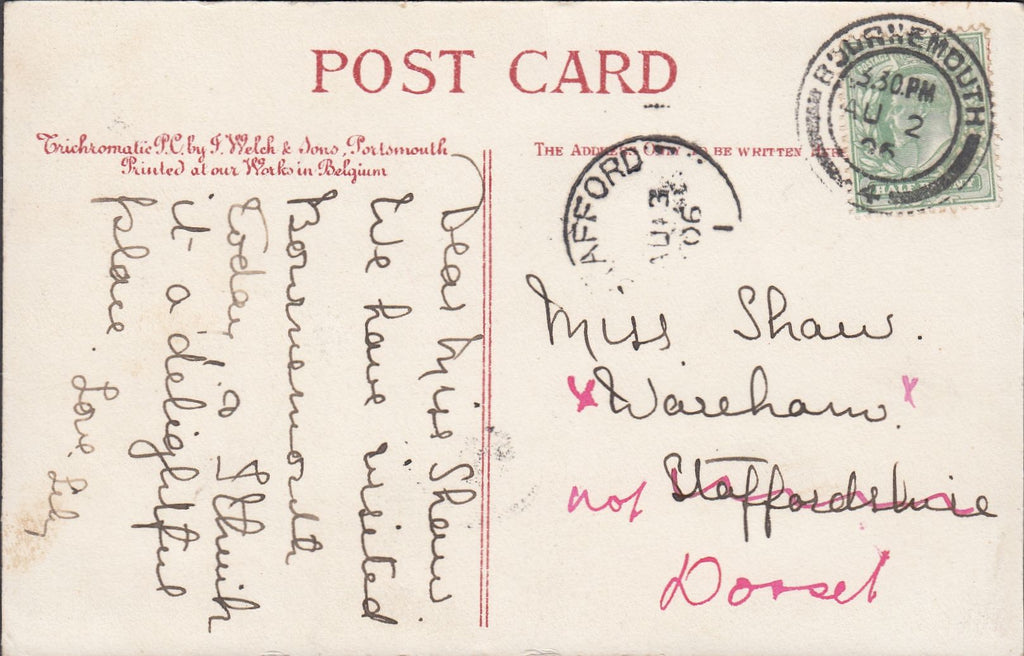 POST CARD
Trichromatic P.C. by J. Welch & Sons, Portsmouth
Printed at our Works in Belgium
THE ADDRESS ONLY TO BE WRITTEN HERE
BOURNEMOUTH
3.30.PM
AU 2
06
4
HALF
POSTAGE
AFFORD
AU 3
06
Dear Miss Shaw
We have visited
Bournemouth
Today & I think
it a delightful
place.
Love, Lily
Miss Shaw.
x Wareham x
not Staffordshire
Dorset